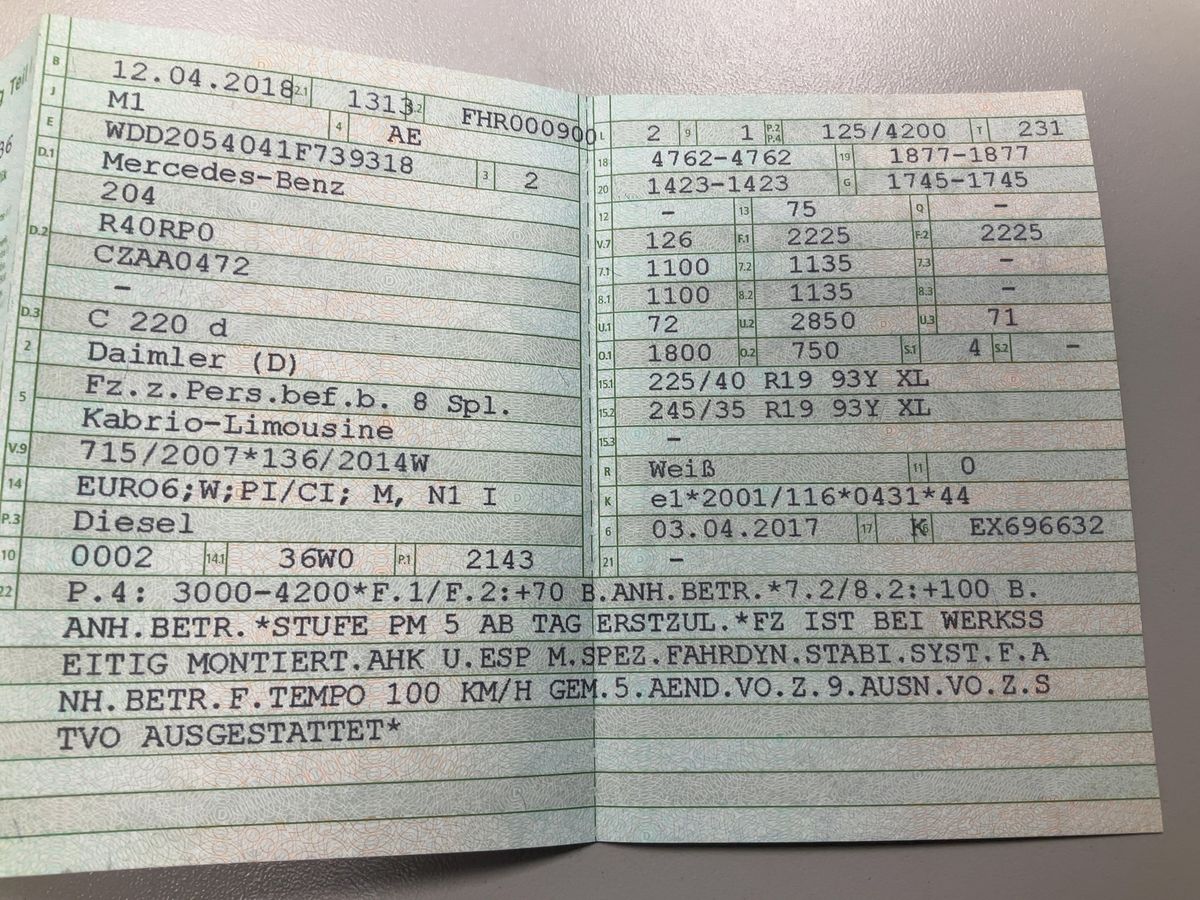 g Teil I
36
B 12.04.2018 2.1 1313 2.2 FHR000900
J M1 4 AE
E WDD2054041F739318 3 2
D.1 Mercedes-Benz
204
D.2 R40RP0
CZAA0472
–
D.3 C 220 d
2 Daimler (D)
5 Fz.z.Pers.bef.b. 8 Spl.
Kabrio-Limousine
V.9 715/2007*136/2014W
14 EURO6;W;PI/CI; M, N1 I
P.3 Diesel
10 0002 14.1 36W0 P.1 2143
L 2 9 1 P.2 P.4 125/4200 T 231
18 4762-4762 19 1877-1877
20 1423-1423 G 1745-1745
12 – 13 75 Q –
V.7 126 F.1 2225 F.2 2225
7.1 1100 7.2 1135 7.3 –
8.1 1100 8.2 1135 8.3 –
U.1 72 U.2 2850 U.3 71
O.1 1800 O.2 750 S.1 4 S.2 –
15.1 225/40 R19 93Y XL
15.2 245/35 R19 93Y XL
15.3 –
R Weiß 11 0
K e1*2001/116*0431*44
6 03.04.2017 17 K 16 EX696632
21 –
22 P.4: 3000-4200*F.1/F.2:+70 B.ANH.BETR.*7.2/8.2:+100 B.
ANH.BETR.*STUFE PM 5 AB TAG ERSTZUL.*FZ IST BEI WERKSS
EITIG MONTIERT.AHK U.ESP M.SPEZ.FAHRDYN.STABI.SYST.F.A
NH.BETR.F.TEMPO 100 KM/H GEM.5.AEND.VO.Z.9.AUSN.VO.Z.S
TVO AUSGESTATTET*